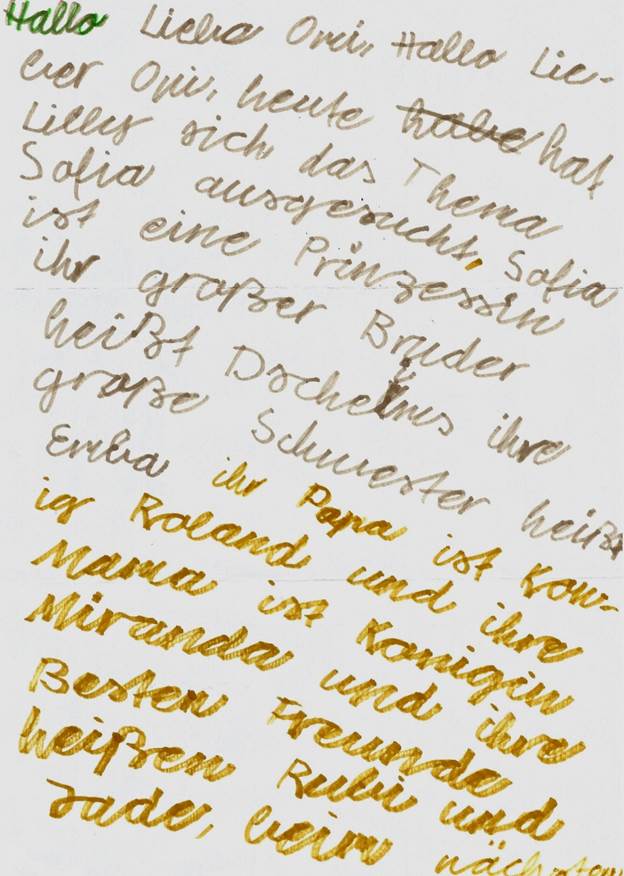 Hallo Liebe Omi, Hallo Lie-
ber Opi, heute habe hat
Lilly sich das Thema
Sofia ausgesucht, Sofia
ist eine Prinzessin
ihr großer Bruder
heißt Dschelms ihre
große Schwester heißt
Emba ihr Papa ist Kon-
ig Roland und ihre
Mama ist Konigin
Miranda und ihre
Besten Freunde
heißen Rubi und
Jade, beim nächsten